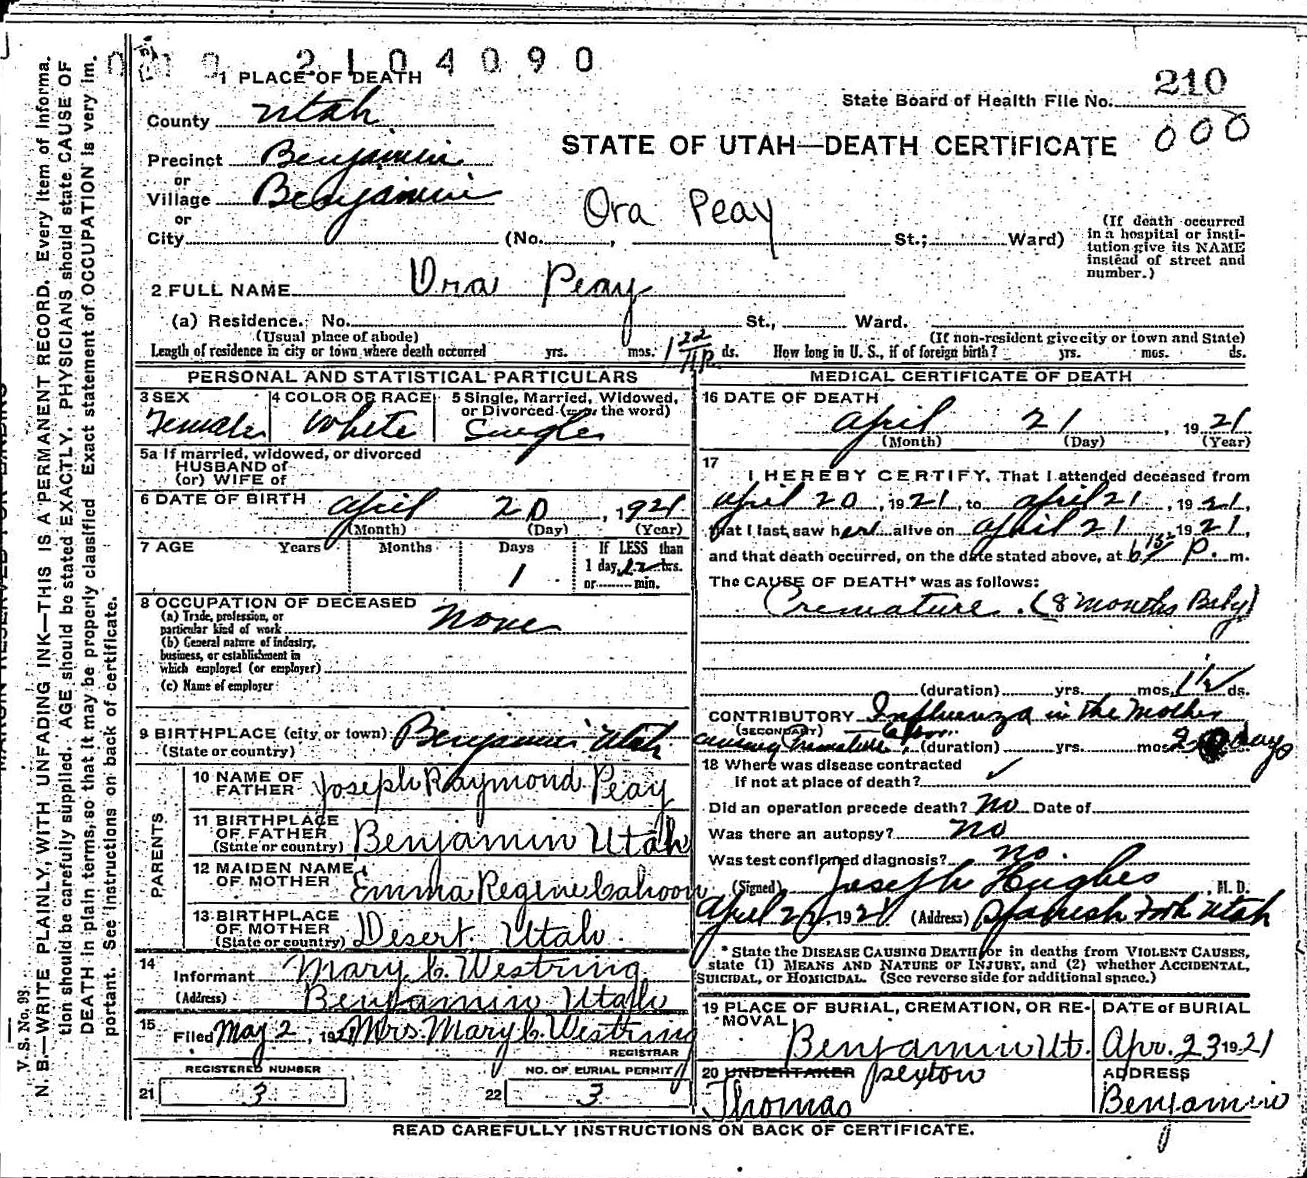 2104090
1 PLACE OF DEATH
210
State Board of Health File No.
000
County Utah
STATE OF UTAH—DEATH CERTIFICATE
Precinct Benjamin
or
Village Benjamin
or
Ora Peay
City (No. , St.; Ward)
(If death occurred in a hospital or insti-
tution give its NAME
instead of street and
number.)
2 FULL NAME Ora Peay
(a) Residence. No. St., Ward.
(Usual place of abode) (If non-resident give city or town and State)
Length of residence in city or town where death occurred yrs. mos. 1 ds. How long in U. S., if of foreign birth? yrs. mos. ds.
PERSONAL AND STATISTICAL PARTICULARS
3 SEX 4 COLOR OR RACE 5 Single, Married, Widowed,
or Divorced (the word)
Female White Single
5a If married, widowed, or divorced
HUSBAND of
(or) WIFE of
6 DATE OF BIRTH April 20, 1921
(Month) (Day) (Year)
7 AGE Years Months Days If LESS than
1 1 day, 12 hrs.
or min.
8 OCCUPATION OF DECEASED
(a) Trade, profession, or
particular kind of work None
(b) General nature of industry,
business, or establishment in
which employed (or employer)
(c) Name of employer
9 BIRTHPLACE (city or town) Benjamin Utah
(State or country)
PARENTS
10 NAME OF
FATHER Joseph Raymond Peay
11 BIRTHPLACE
OF FATHER
(State or country) Benjamin Utah
12 MAIDEN NAME
OF MOTHER Emma Regine Cahoon
13 BIRTHPLACE
OF MOTHER
(State or country) Desert Utah
14 Informant Mary C. Westring
(Address) Benjamin Utah
15 Filed May 2, 1921 Mrs. Mary C. Westring
REGISTRAR
REGISTERED NUMBER NO. OF BURIAL PERMIT
21 3 22 3
MEDICAL CERTIFICATE OF DEATH
16 DATE OF DEATH
April 21, 1921
(Month) (Day) (Year)
17
I HEREBY CERTIFY, That I attended deceased from
April 20, 1921, to April 21, 1921,
that I last saw her alive on April 21 1921,
and that death occurred, on the date stated above, at 6 P. m.
The CAUSE OF DEATH* was as follows:
Premature. (8 months Baby)
(duration) yrs. mos. 1½ ds.
CONTRIBUTORY Influenza in the Mother
(SECONDARY)
causing Premature Labor. (duration) yrs. mos. 2 days
18 Where was disease contracted
if not at place of death?
Did an operation precede death? No Date of
Was there an autopsy? No
Was test confirmed diagnosis? No.
(Signed) Joseph Hughes, M. D.
April 22, 1921 (Address) Spanish Fork Utah
* State the DISEASE CAUSING DEATH, or in deaths from VIOLENT CAUSES,
state (1) MEANS AND NATURE OF INJURY, and (2) whether ACCIDENTAL,
SUICIDAL, or HOMICIDAL. (See reverse side for additional space.)
19 PLACE OF BURIAL, CREMATION, OR RE-
MOVAL DATE of BURIAL
Benjamin Ut. Apr. 23 1921
20 UNDERTAKER Sexton ADDRESS
Thomas Benjamin
READ CAREFULLY INSTRUCTIONS ON BACK OF CERTIFICATE.
V. S. No. 93.
N. B.—WRITE PLAINLY, WITH UNFADING INK—THIS IS A PERMANENT RECORD. Every item of informa-
tion should be carefully supplied. AGE should be stated EXACTLY. PHYSICIANS should state CAUSE OF
DEATH in plain terms, so that it may be properly classified. Exact statement of OCCUPATION is very im-
portant. See instructions on back of certificate.